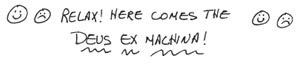 RELAX! HERE COMES THE
DEUS EX MACHINA!